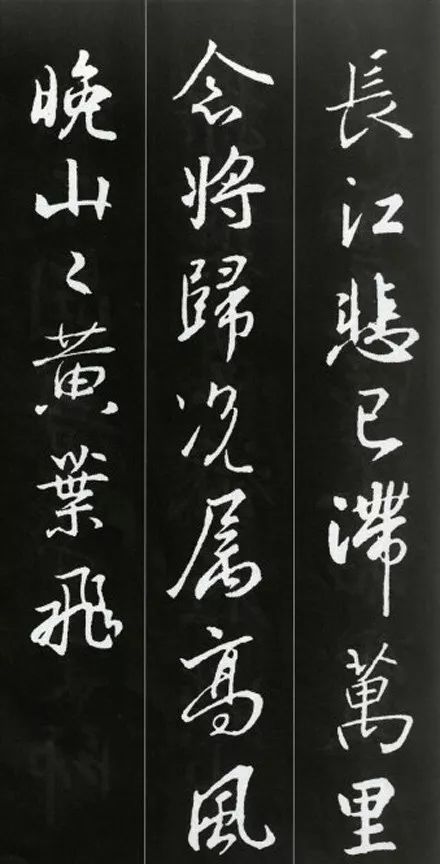 長江悲已滯萬里
念将歸况属高風
晚山〻黄葉飛